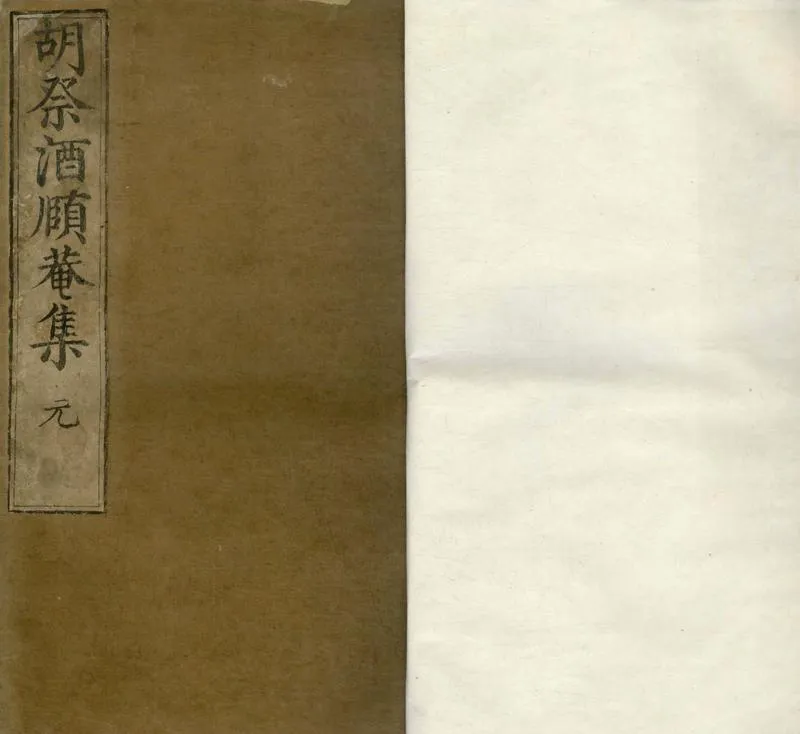 胡祭酒頤菴集 元